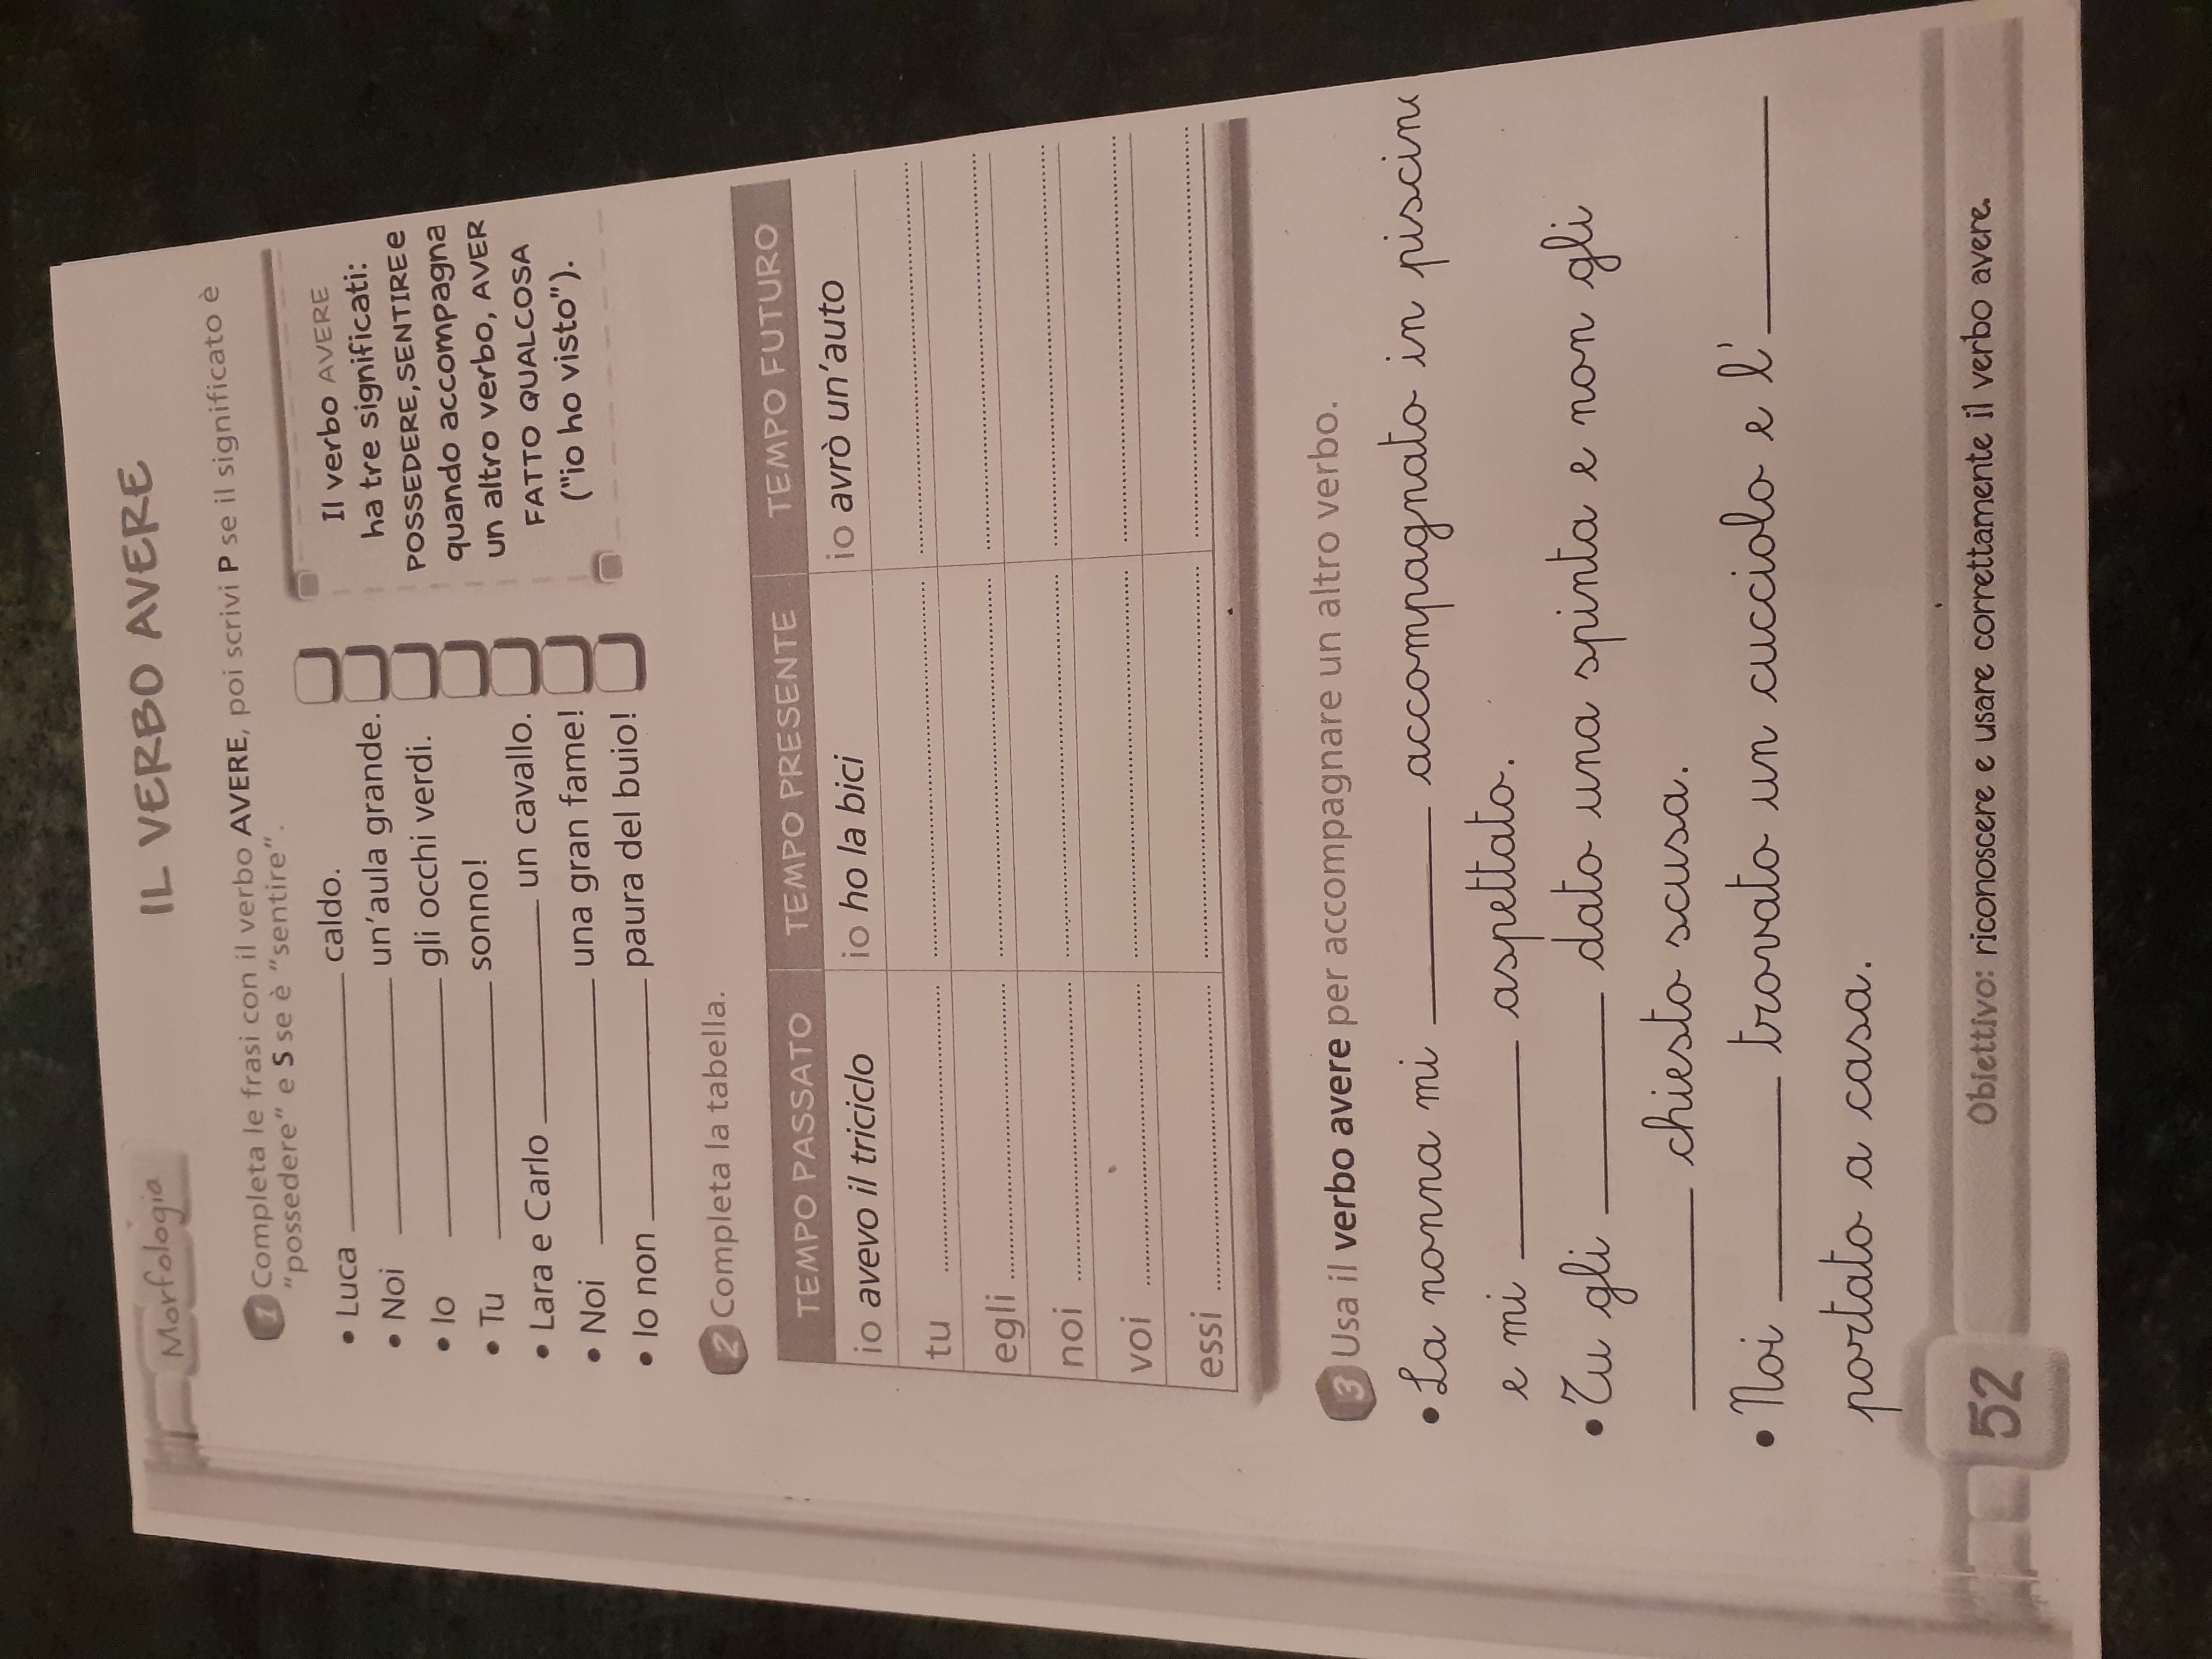 Morfologia
IL VERBO AVERE
1 Completa le frasi con il verbo AVERE, poi scrivi P se il significato è
"possedere" e S se è "sentire".
• Luca ______ caldo.
• Noi ______ un'aula grande.
• Io ______ gli occhi verdi.
• Tu ______ sonno!
• Lara e Carlo ______ un cavallo.
• Noi ______ una gran fame!
• Io non ______ paura del buio!
Il verbo AVERE
ha tre significati:
POSSEDERE, SENTIRE e
quando accompagna
un altro verbo, AVER
FATTO QUALCOSA
("io ho visto").
2 Completa la tabella.
TEMPO PASSATO TEMPO PRESENTE TEMPO FUTURO
io avevo il triciclo io ho la bici io avrò un'auto
tu
egli
noi
voi
essi
3 Usa il verbo avere per accompagnare un altro verbo.
• La nonna mi ______ accompagnato in piscin
e mi ______ aspettato.
• Tu gli ______ dato una spinta e non gli
______ chiesto scusa.
• Noi ______ trovato un cucciolo e l' ______
portato a casa.
52 Obiettivo: riconoscere e usare correttamente il verbo avere.